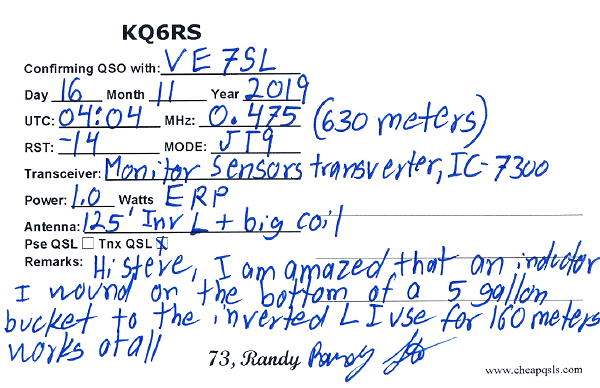 KQ6RS
Confirming QSO with: VE7SL
Day 16 Month 11 Year 2019
UTC: 04:04 MHz: 0.475 (630 meters)
RST: -14 MODE: JT9
Transceiver: Monitor Sensors transverter, IC-7300
Power: 1.0 Watts ERP
Antenna: 125' Inv L + big coil
Pse QSL ☐ Tnx QSL ☒
Remarks: Hi Steve, I am amazed that an inductor
I wound on the bottom of a 5 gallon
bucket to the inverted L I use for 160 meters
works at all
73, Randy Randy
www.cheapqsls.com